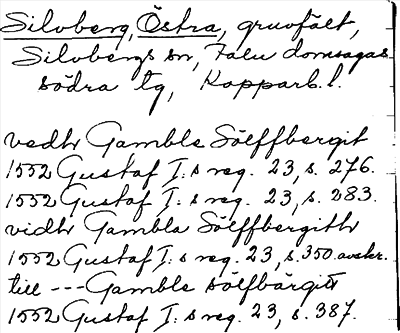 Silvberg, Östra, gruvfält,
Silvbergs sn, Falu domsagas
södra tg, Kopparb. l.
vedh Gambla Sölffbergit
1552 Gustaf I:s reg. 23, s. 276.
1552 Gustaf I:s reg. 23, s. 283.
vidh Gambla Sölffbergith
1552 Gustaf I:s reg. 23, s. 350. avskr.
till --- Gamble sölfbärgitt
1552 Gustaf I:s reg. 23, s. 387.